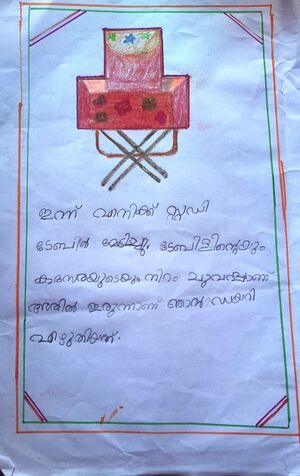 ഇന്ന് എനിക്ക് സ്റ്റഡി
ടേബിൽ മേടിച്ചു. ടേബിളിൻ്റെയും
കസേരയുടെയും നിറം ചുവപ്പാണ്
അതിൽ ഇരുന്നാണ് ഞാൻ ഡയറി
എഴുതിയത്.